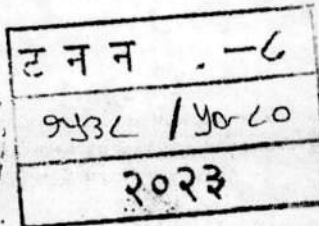 ट न न . -८
१५३८ / ५०-८०
२०२३